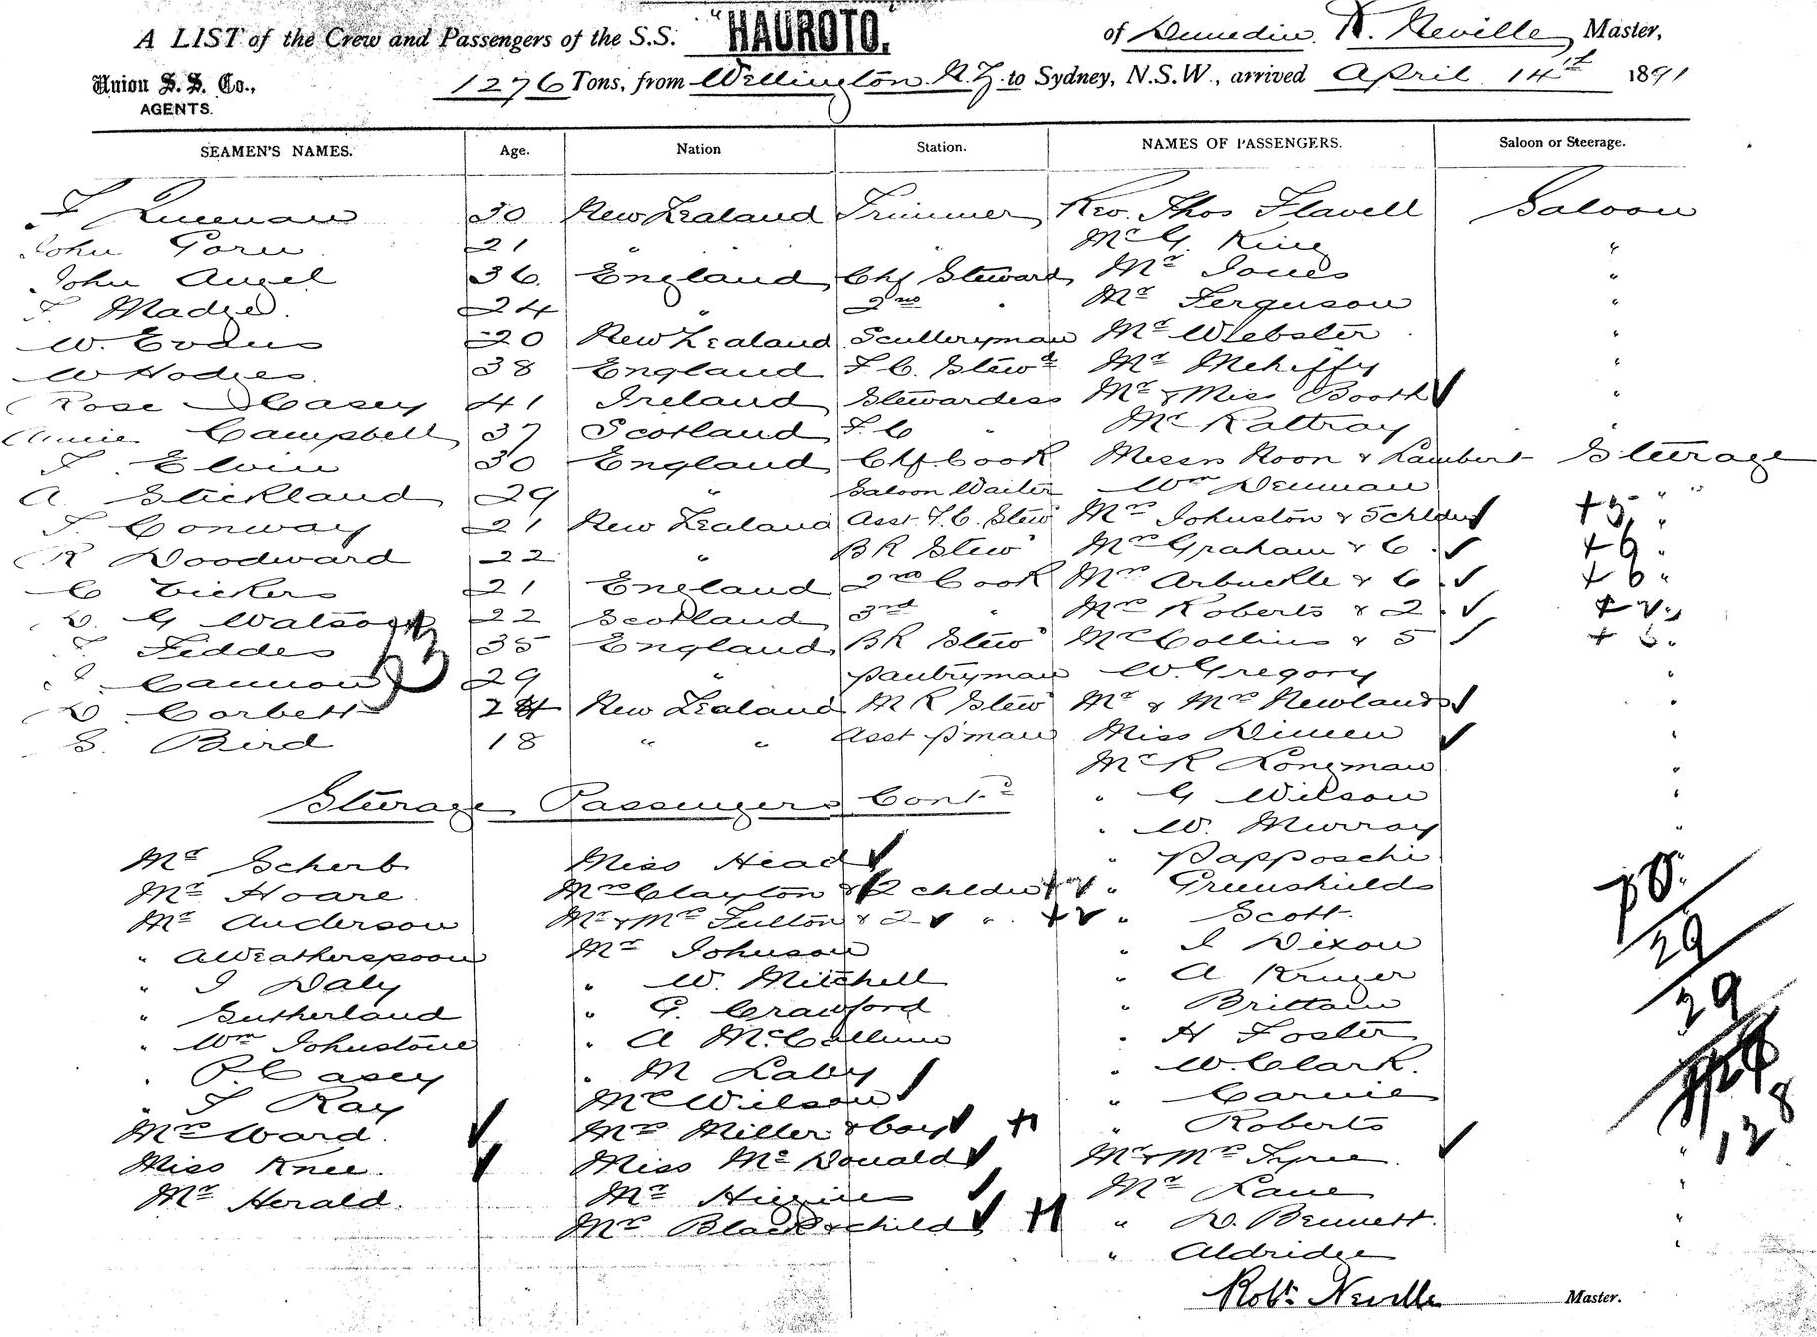 A LIST of the Crew and Passengers of the S.S. "HAUROTO." of Dunedin. R. Neville, Master,
Union S. S. Co., AGENTS. 1276 Tons, from Wellington N.Z. to Sydney, N.S.W., arrived April 14th 1891
SEAMEN'S NAMES. Age. Nation Station. NAMES OF PASSENGERS. Saloon or Steerage.
F 30 New Zealand Trimmer Rev. Thos Flavell Saloon
John 21 " " " Mr G King "
John Angel 36. England Chf Steward Mr Jones "
F. Madge. 24 " 2nd " Mr Ferguson "
W. Evans 20 New Zealand Sculleryman Mr Webster "
W Hodges 38 England F. C. Stewd Mr Mehiffy "
Rose Casey 41 Ireland Stewardess Mr & Miss Booth "
Annie Campbell 37 Scotland F. C " Mr Rattray "
F. Elvin 30 England Chf. Cook Messrs Noon & Lambert Steerage
A. Stickland 29 " Saloon Waiter Wm Denman " "
T. Conway 21 New Zealand Asst F. C. Stewd Mrs Johnston & 5 chldn +5 "
R Woodward 22 " B R Stewd Mrs Graham & 6 +6 "
C Vickers 21 England 2nd Cook Mrs Arbuckle & 6 +6 "
D. G Watson 22 Scotland 3rd " Mrs Roberts & 2 +2 "
F Feddes 35 England B R Stewd Mrs Collins & 5 + "
53
J. Cannon 29 " Pantryman W. Gregory "
D. Corbett 24 New Zealand M R Stewd Mr & Mrs Newlands "
G. Bird 18 " " Asst P'man Miss "
Mr R Longman "
Steerage Passengers Contd
" G Wilson "
" W. Murray "
Mr Scherb Miss Head " Pappaschi "
Mr Hoare. Mrs Clayton & 2 chldn +2 " Greenshields
Mr Anderson Mr & Mrs Fulton & 2 " +2 " Scott.
" A Weatherspoon Mr Johnson " J Dixon
29
" J Daly " W. Mitchell " A Kruger
" Sutherland " G. Crawford " Brittain
29
" Wm Johnstone " A McCallum " H Foster
" P. Casey " M Laby " W. Clark.
" T Ray Mr Wilson " Carnie
128
Mrs Ward. Mrs Miller & boy +1 " Roberts
Miss Knee. Miss McDonald Mr & Mrs Tyree. "
Mr Herald. Mr Higgins Mr Lane "
Mrs Black & child +1 " D. Bennett. "
" Aldridge "
Robt. Neville Master.